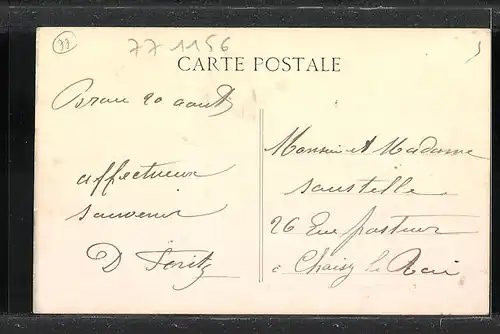 77
771156
CARTE POSTALE
Brau 20 août
affectueux
souvenir
D Fritz
Monsieur et Madame
Saustelle
26 Rue pasteur
a Choisy le Roi